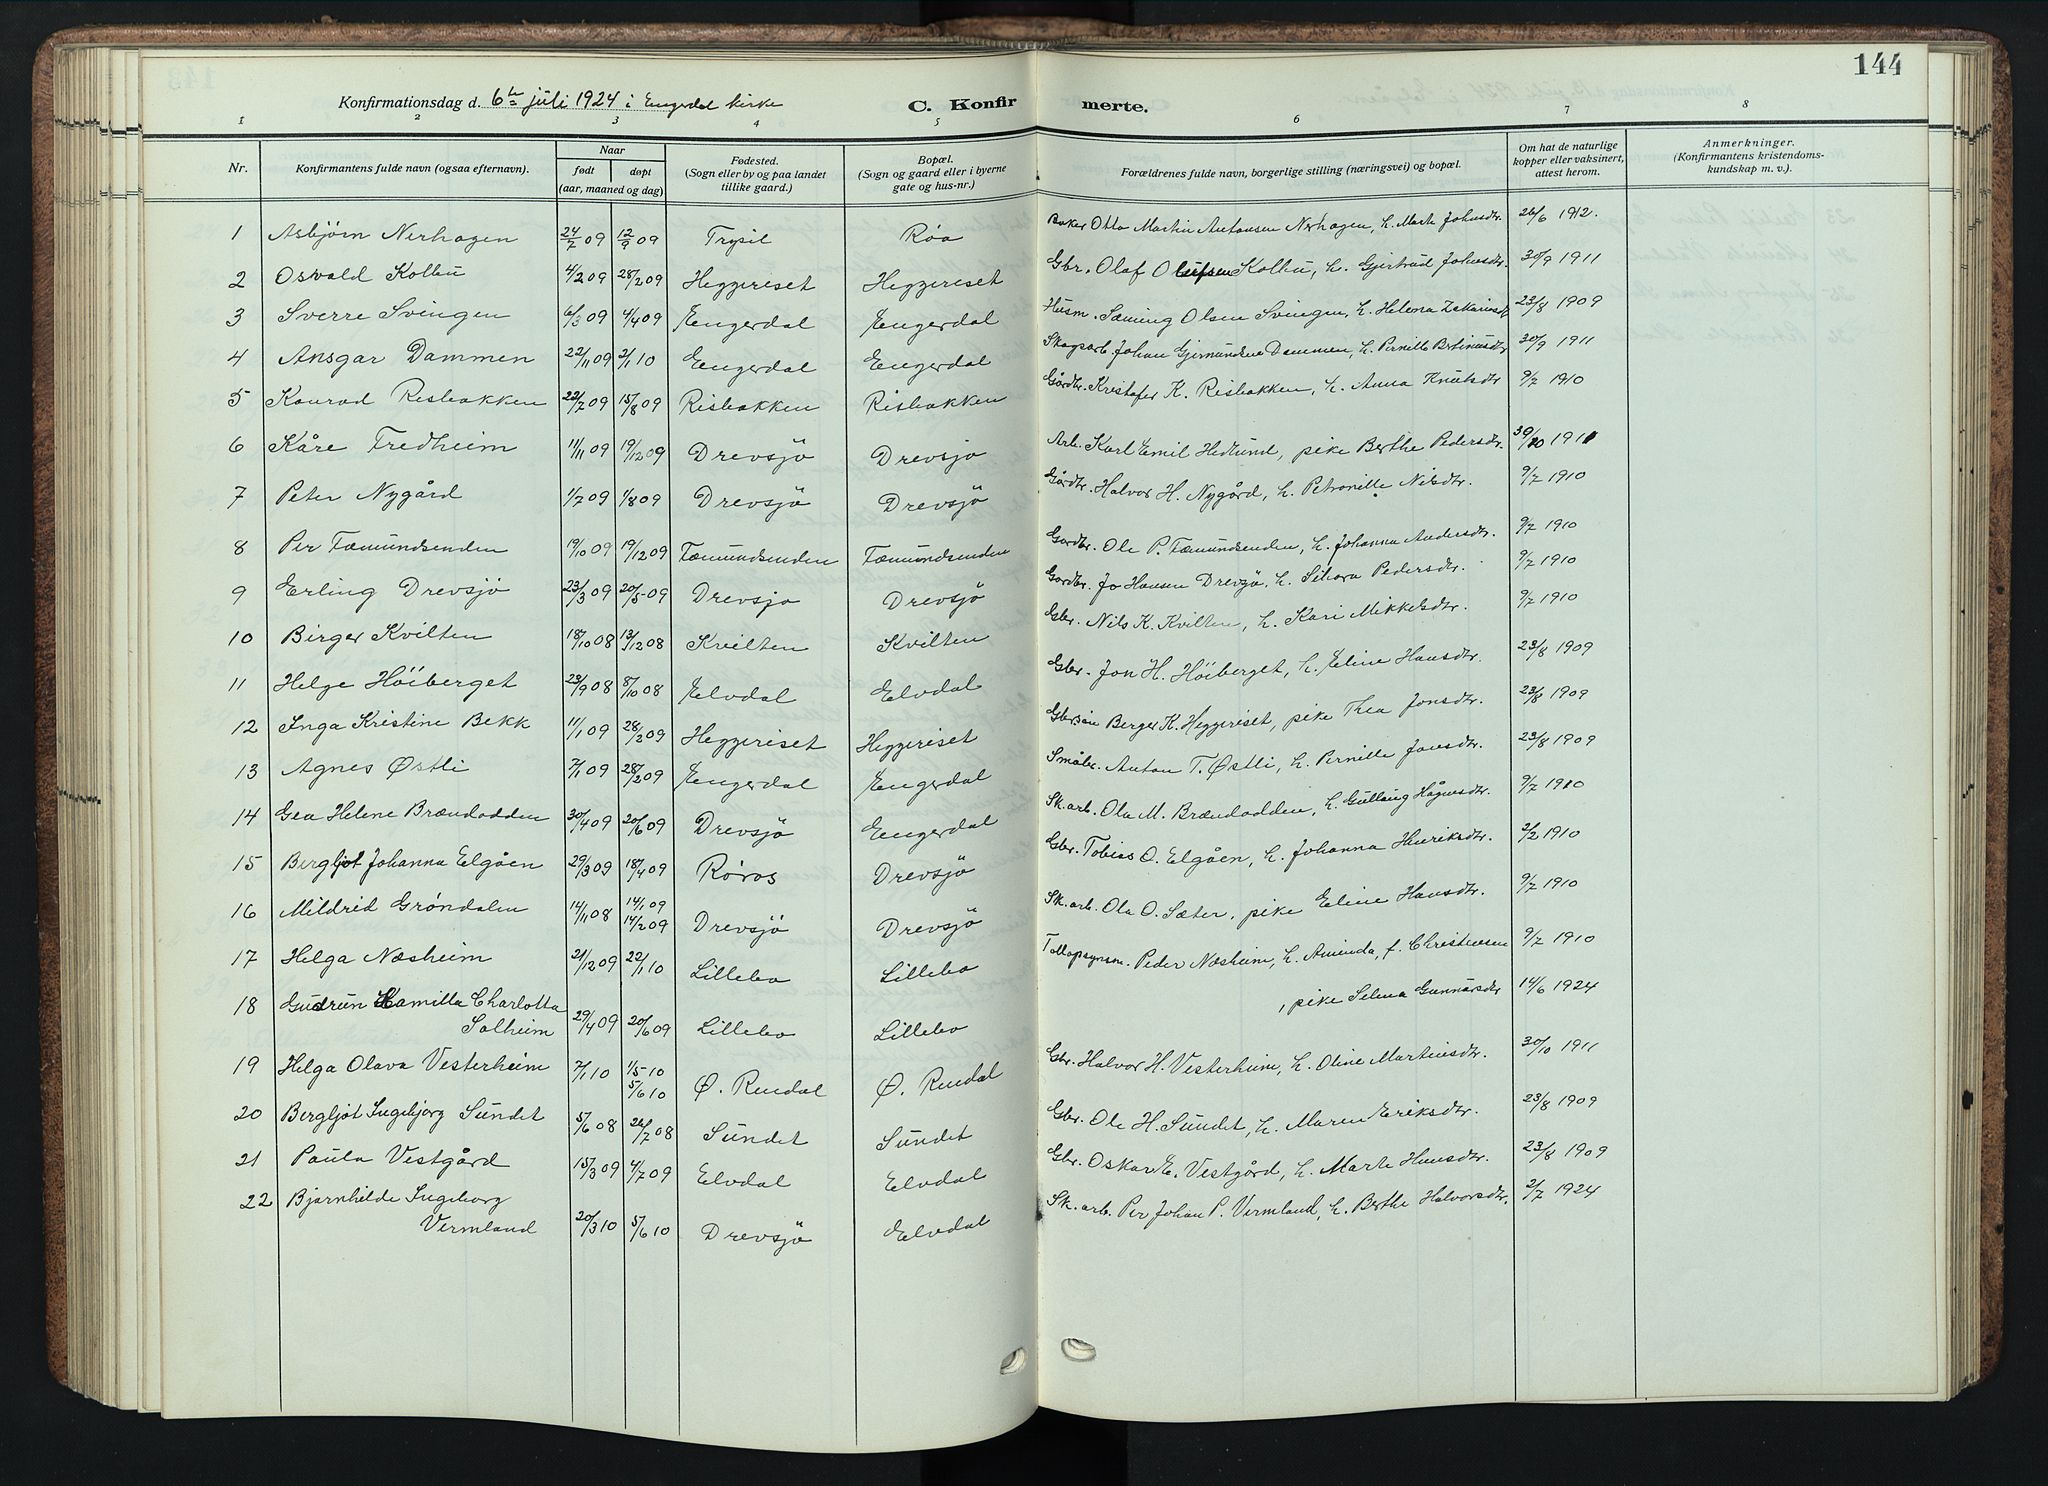 144
Konfirmationsdag d. 6te juli 1924 i Engerdal kirke
C. Konfirmerte.
1 2 3 4 5 6 7 8
Nr. Konfirmantens fulde navn (ogsaa efternavn). Naar født døpt (aar, maaned og dag) Fødested. (Sogn eller by og paa landet tillike gaard.) Bopæl. (Sogn og gaard eller i byerne gate og hus-nr.) Forældrenes fulde navn, borgerlige stilling (næringsvei) og bopæl. Om hat de naturlige kopper eller vaksinert, attest herom. Anmerkninger. (Konfirmantens kristendomskundskap m. v.).
1 Asbjørn Nerhagen 24/7 09 12/9 09 Trysil Røa Baker Otto Martin Antonsen Nerhagen, h. Marte Johnsdtr. 26/6 1912.
2 Osvald Kolbu 4/2 09 28/2 09 Heggeriset Heggeriset Gbr. Olaf Olufsen Kolbu, h. Gjertrud Johnsdtr. 30/9 1911
3 Sverre Svingen 6/3 09 4/4 09 Engerdal Engerdal Husm. Sæming Olsen Svingen, h. Helena 23/8 1909
4 Ansgar Dammen 22/11 09 2/1 10 Engerdal Engerdal Skogsarb. Johan Gjermundsen Dammen, h. Pernille 30/9 1911
5 Konrad Risbakken 22/7 09 15/8 09 Risbakken Risbakken Gårdbr. Kristofer K. Risbakken, h. Anna Knutsdtr 9/7 1910
6 Kåre Fredheim 11/11 09 19/12 09 Drevsjö Drevsjö Arb. Karl Emil Hedlund, pike Berthe Pedersdtr. 30/10 1911
7 Peter Nygård 1/7 09 1/8 09 Drevsjö Drevsjö Gårdbr. Halvor H. Nygård, h. Petronille Nilsdtr. 9/7 1910
8 Per Fæmundsenden 19/10 09 19/12 09 Fæmundsenden Fæmundsenden Gårdbr. Ole P. Fæmundsenden, h. Johanna Andersdtr. 9/7 1910
9 Erling Drevsjö 23/3 09 20/5-09 Drevsjö Drevsjö Gårdbr. Jo Hansen Drevsjö, h. Pedersdtr. 9/7 1910
10 Birger Kvilten 18/10 08 13/12 08 Kvilten Kvilten Gbr. Nils K. Kvilten, h. Kari Mikkelsdtr. 9/7 1910
11 Helge Höiberget 23/9 08 8/10 08 Elvdal Elvdal Gbr. Jon H. Höiberget, h. Eline Hansdtr. 23/8 1909
12 Inga Kristine Bekk 11/1 09 28/2 09 Heggeriset Heggeriset Gbrsön Berger K. Heggeriset, pike Thea Jonsdtr. 23/8 1909
13 Agnes Østli 7/1 09 28/2 09 Engerdal Engerdal Småbr. Anton T. Østli, h. Pernille Jonsdtr. 23/8 1909
14 Gea Helene Brændodden 30/4 09 20/6 09 Drevsjö Engerdal Sk. arb. Ola M. Brændodden, h. Gullaug Hågensdtr. 9/7 1910
15 Bergljot Johanna Elgåen 29/3 09 18/4 09 Røros Drevsjö Gbr. Tobias O. Elgåen, h. Johanna Henriksdtr. 2/2 1910
16 Mildrid Grøndalen 14/11 08 14/1 09 14/2 09 Drevsjö Drevsjö Sk. arb. Ola O. Sæter, pike Eline Hansdtr. 9/7 1910
17 Helga Næsheim 21/12 09 22/1 10 Lillebo Lillebo Tollopsynsm. Peder Næsheim, h. Aminda, f. Christensen 9/7 1910
18 Gudrun Kamilla Charlotta Solheim 29/4 09 20/6 09 Lillebo Lillebo , pike Selma Gunnarsdtr 14/6 1924
19 Helga Olava Vesterheim 7/1 10 1/5-10 5/6 10 Ø. Rendal Ø. Rendal Gbr. Halvor H. Vesterheim, h. Oline Martinsdtr. 30/10 1911
20 Bergljot Ingebjorg Sundet 5/6 08 26/7 08 Sundet Sundet Gbr. Ole H. Sundet, h. Maren Eriksdtr. 23/8 1909
21 Paula Vestgård 15/3 09 4/7 09 Elvdal Elvdal Gbr. Oskar E. Vestgård, h. Marte Hansdtr. 23/8 1909
22 Bjarnhilde Ingeborg Vermland 20/3 10 5/6 10 Drevsjö Elvdal Sk. arb. Per Johan P. Vermland, h. Berthe Halvorsdtr. 2/7 1924